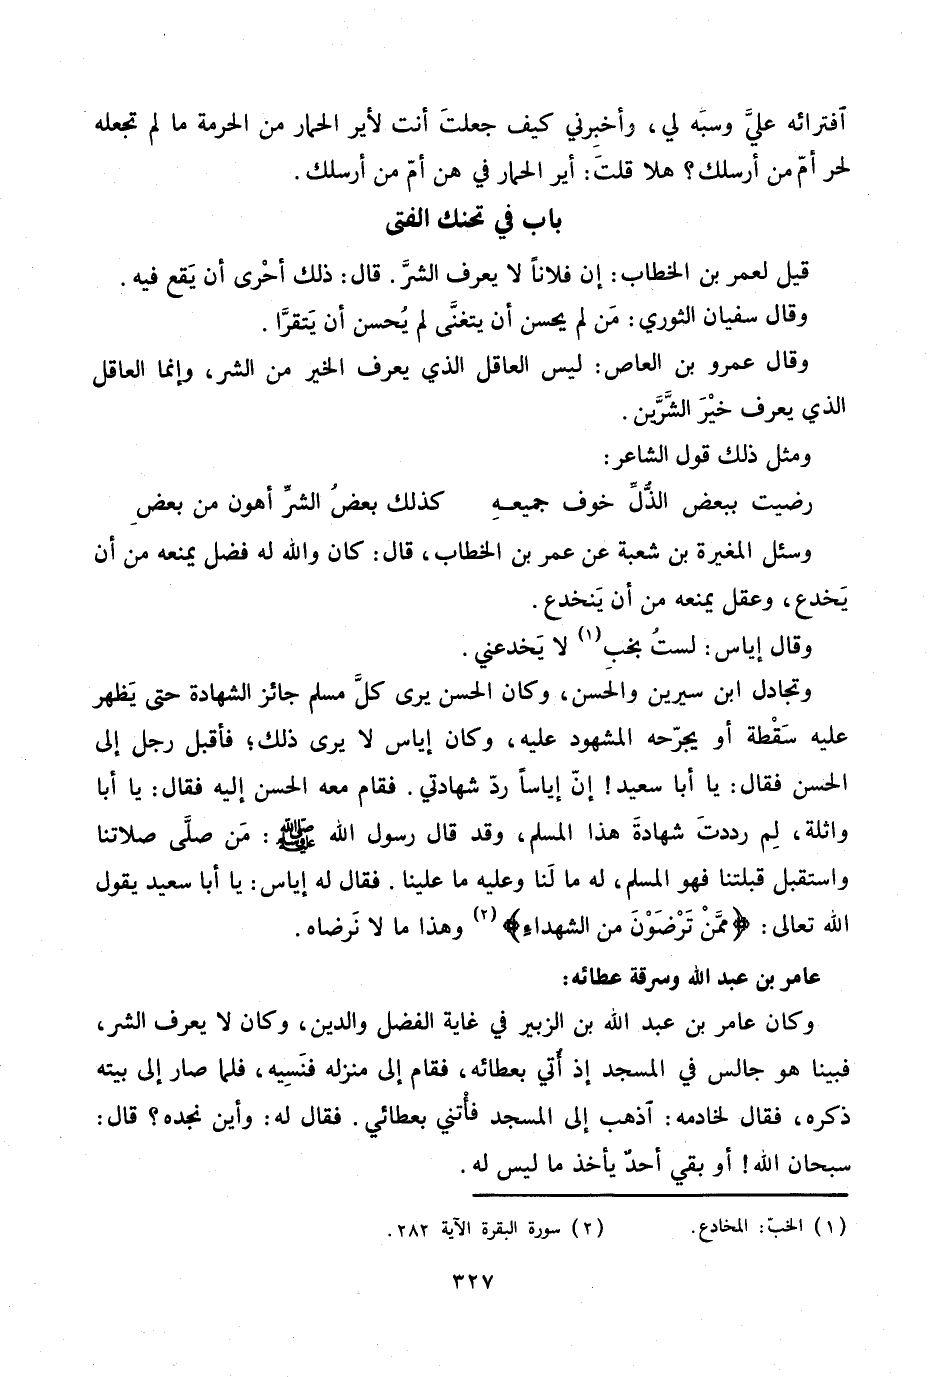 آفترائه عليَّ وسبَّه لي، وأخبِرني كيف جعلتَ أنت لأير الحمار من الحرمة ما لم تجعله
لحر أمّ من أرسلك؟ هلا قلتَ: أير الحمار في هن أمّ من أرسلك.
باب في تحنك الفتى
قيل لعمر بن الخطاب: إن فلاناً لا يعرف الشرَّ. قال: ذلك أحْرى أن يَقع فيه.
وقال سفيان الثوري: مَن لم يحسن أن يتغنَّى لم يُحسن أن يَتقرَّا.
وقال عمرو بن العاص: ليس العاقل الذي يعرف الخير من الشر، وإنما العاقل
الذي يعرف خيْرَ الشَّرَّين.
ومثل ذلك قول الشاعر:
رضيت ببعض الذُّلِّ خوف جميعـهِ كذلك بعضُ الشرِّ أهون من بعضِ
وسئل المغيرة بن شعبة عن عمر بن الخطاب، قال: كان والله له فضل يمنعه من أن
يَخدع، وعقل يمنعه من أن يَنخدع.
وقال إياس: لستُ بخبٍ (١) لا يَخدعني.
وتجادل ابن سيرين والحسن، وكان الحسن يرى كلَّ مسلم جائز الشهادة حتى يَظهر
عليه سَقْطة أو يجرّحه المشهود عليه، وكان إياس لا يرى ذلك؛ فأقبل رجل إلى
الحسن فقال: يا أبا سعيد! إنّ إياساً ردّ شهادتي. فقام معه الحسن إليه فقال: يا أبا
واثلة، لِم رددتَ شهادةَ هذا المسلم، وقد قال رسول الله ﷺ: مَن صلَّى صلاتنا
واستقبل قبلتنا فهو المسلم، له ما لَنا وعليه ما علينا. فقال له إياس: يا أبا سعيد يقول
الله تعالى: ﴿ممَّنْ تَرْضَوْنَ من الشهداء﴾ (٢) وهذا ما لا نَرضاه.
عامر بن عبد الله وسرقة عطائه:
وكان عامر بن عبد الله بن الزبير في غاية الفضل والدين، وكان لا يعرف الشر،
فبينا هو جالس في المسجد إذ أُتي بعطائه، فقام إلى منزله فنَسِيه، فلما صار إلى بيته
ذكره، فقال لخادمه: آذهب إلى المسجد فأْتني بعطائي. فقال له: وأين نجده؟ قال:
سبحان الله! أو بقي أحدٌ يأخذ ما ليس له.
(١) الخبّ: المخادع. (٢) سورة البقرة الآية ٢٨٢.
٣٢٧